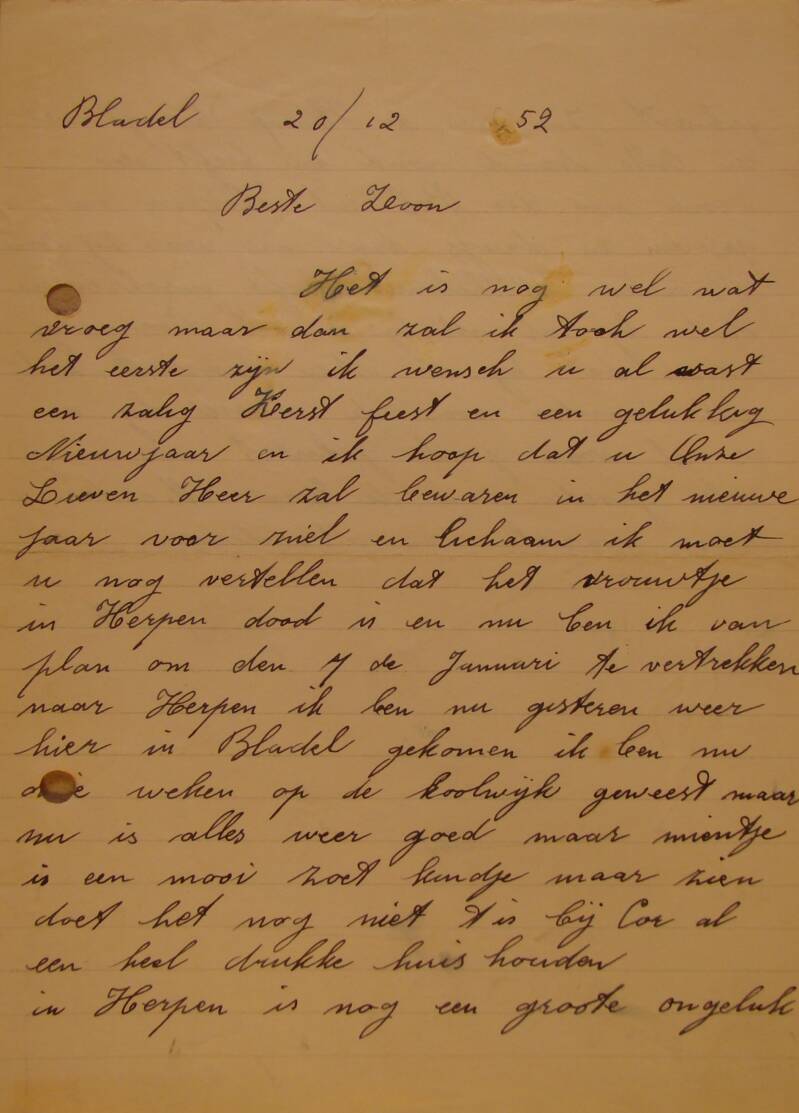 Bladel 20/12 52
Beste Zoon
Het is nog wel wat
vroeg maar dan zal ik toch wel
het eerste zijn ik wensch u al vast
een zalig Kerst feest en een gelukkig
Nieuwjaar en ik hoop dat u Onze
Lieven Heer zal bewaren in het nieuwe
jaar voor ziel en lichaam ik moet
u nog vertellen dat het vrouwtje
in Herpen dood is en nu ben ik van
plan om den 7 de Januari te vertrekken
naar Herpen ik ben nu gisteren weer
hier in Bladel gekomen ik ben nu
weken op de koolwijk geweest maar
nu is alles weer goed maar mientje
is een mooi zoet kindje maar zien
doet het nog niet t is bij Cor al
een heel drukke huis houden
in Herpen is nog een groote ongeluk